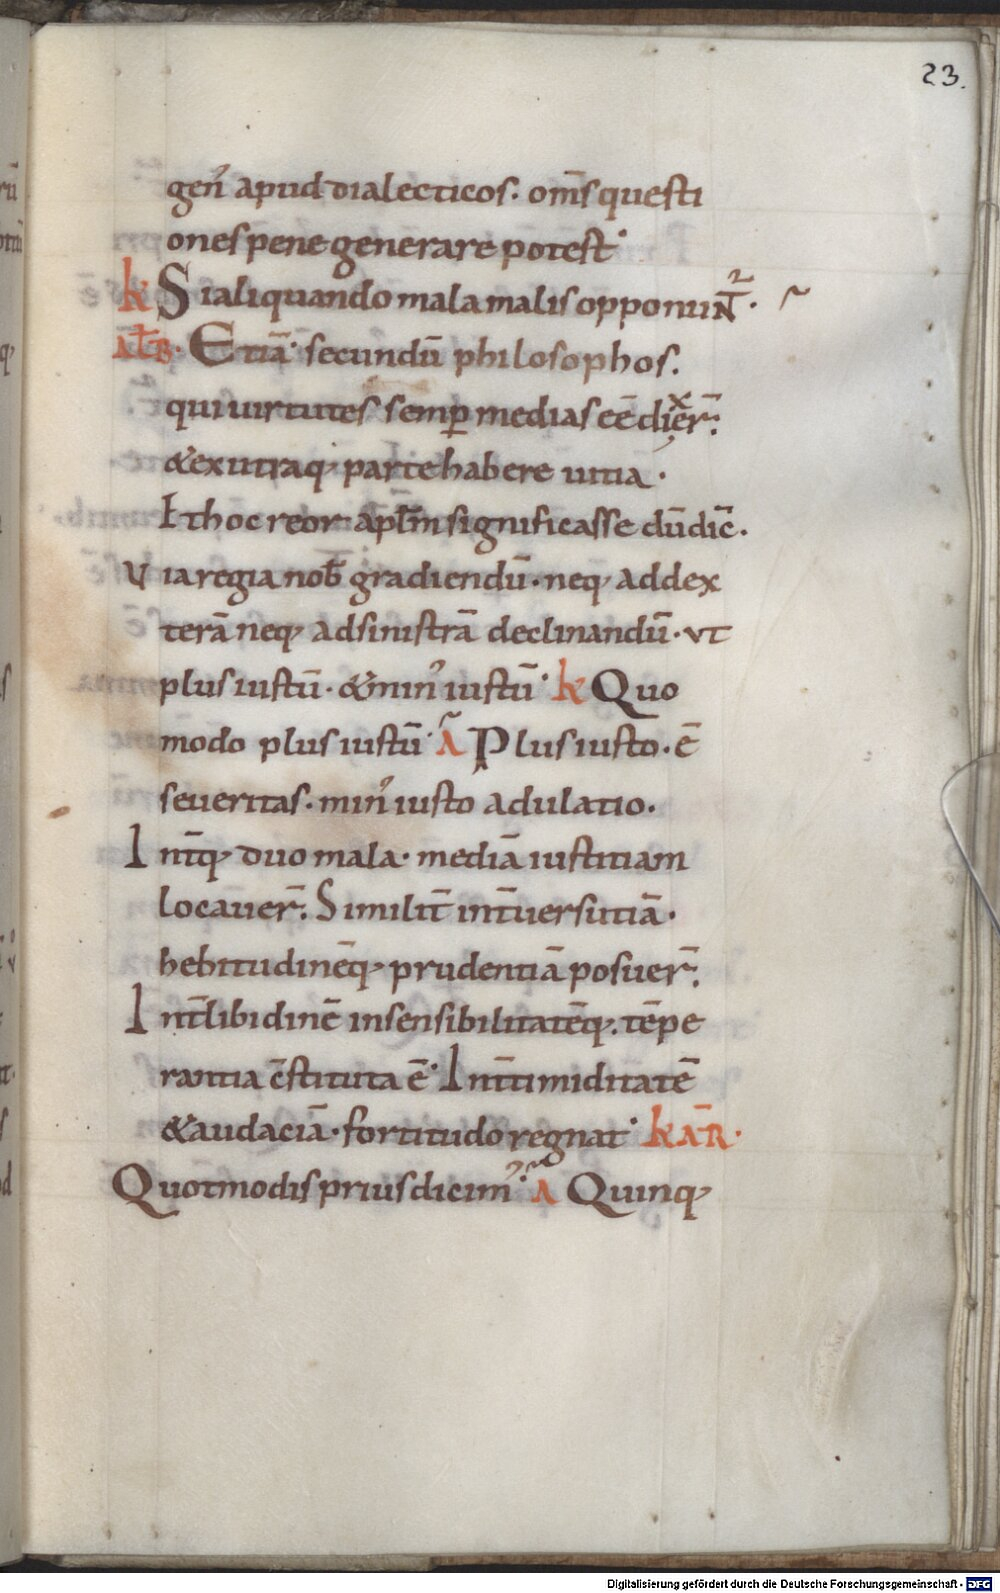 23.
gen᾽ apud dialecticos. om̄s questi
ones pene generare potest.
k Si aliquando mala malis opponunt̄.
Alb̄. Etiā secundū philosophos.
qui uirtutes semp̱ medias eē dixer̄.
& ex utraq; parte habere uitia.
Et hoc reor apl̄m significasse dū dic̄.
Via regia nob̄ gradiendū. neq; ad dex
terā neq; ad sinistrā declinandū. ut
plus iustū. & min᾽ iustū. k Quo
modo plus iustū. A Plus iusto. ē
seueritas. min᾽ iusto adulatio.
Int̄q; duo mala. mediā iustitiam
locauer̄. Similit̄ int̄ uersutiā.
hebitudinēq; prudentiā posuer̄.
Int̄ libidinē insensibilitatēq; tēpe
rantia c̄stituta ē. Int̄ timiditatē
& audaciā. fortitudo regnat. kār.
Quot modis prius dicim᾽. A Quinq;
Digitalisierung gefördert durch die Deutsche Forschungsgemeinschaft - DFG